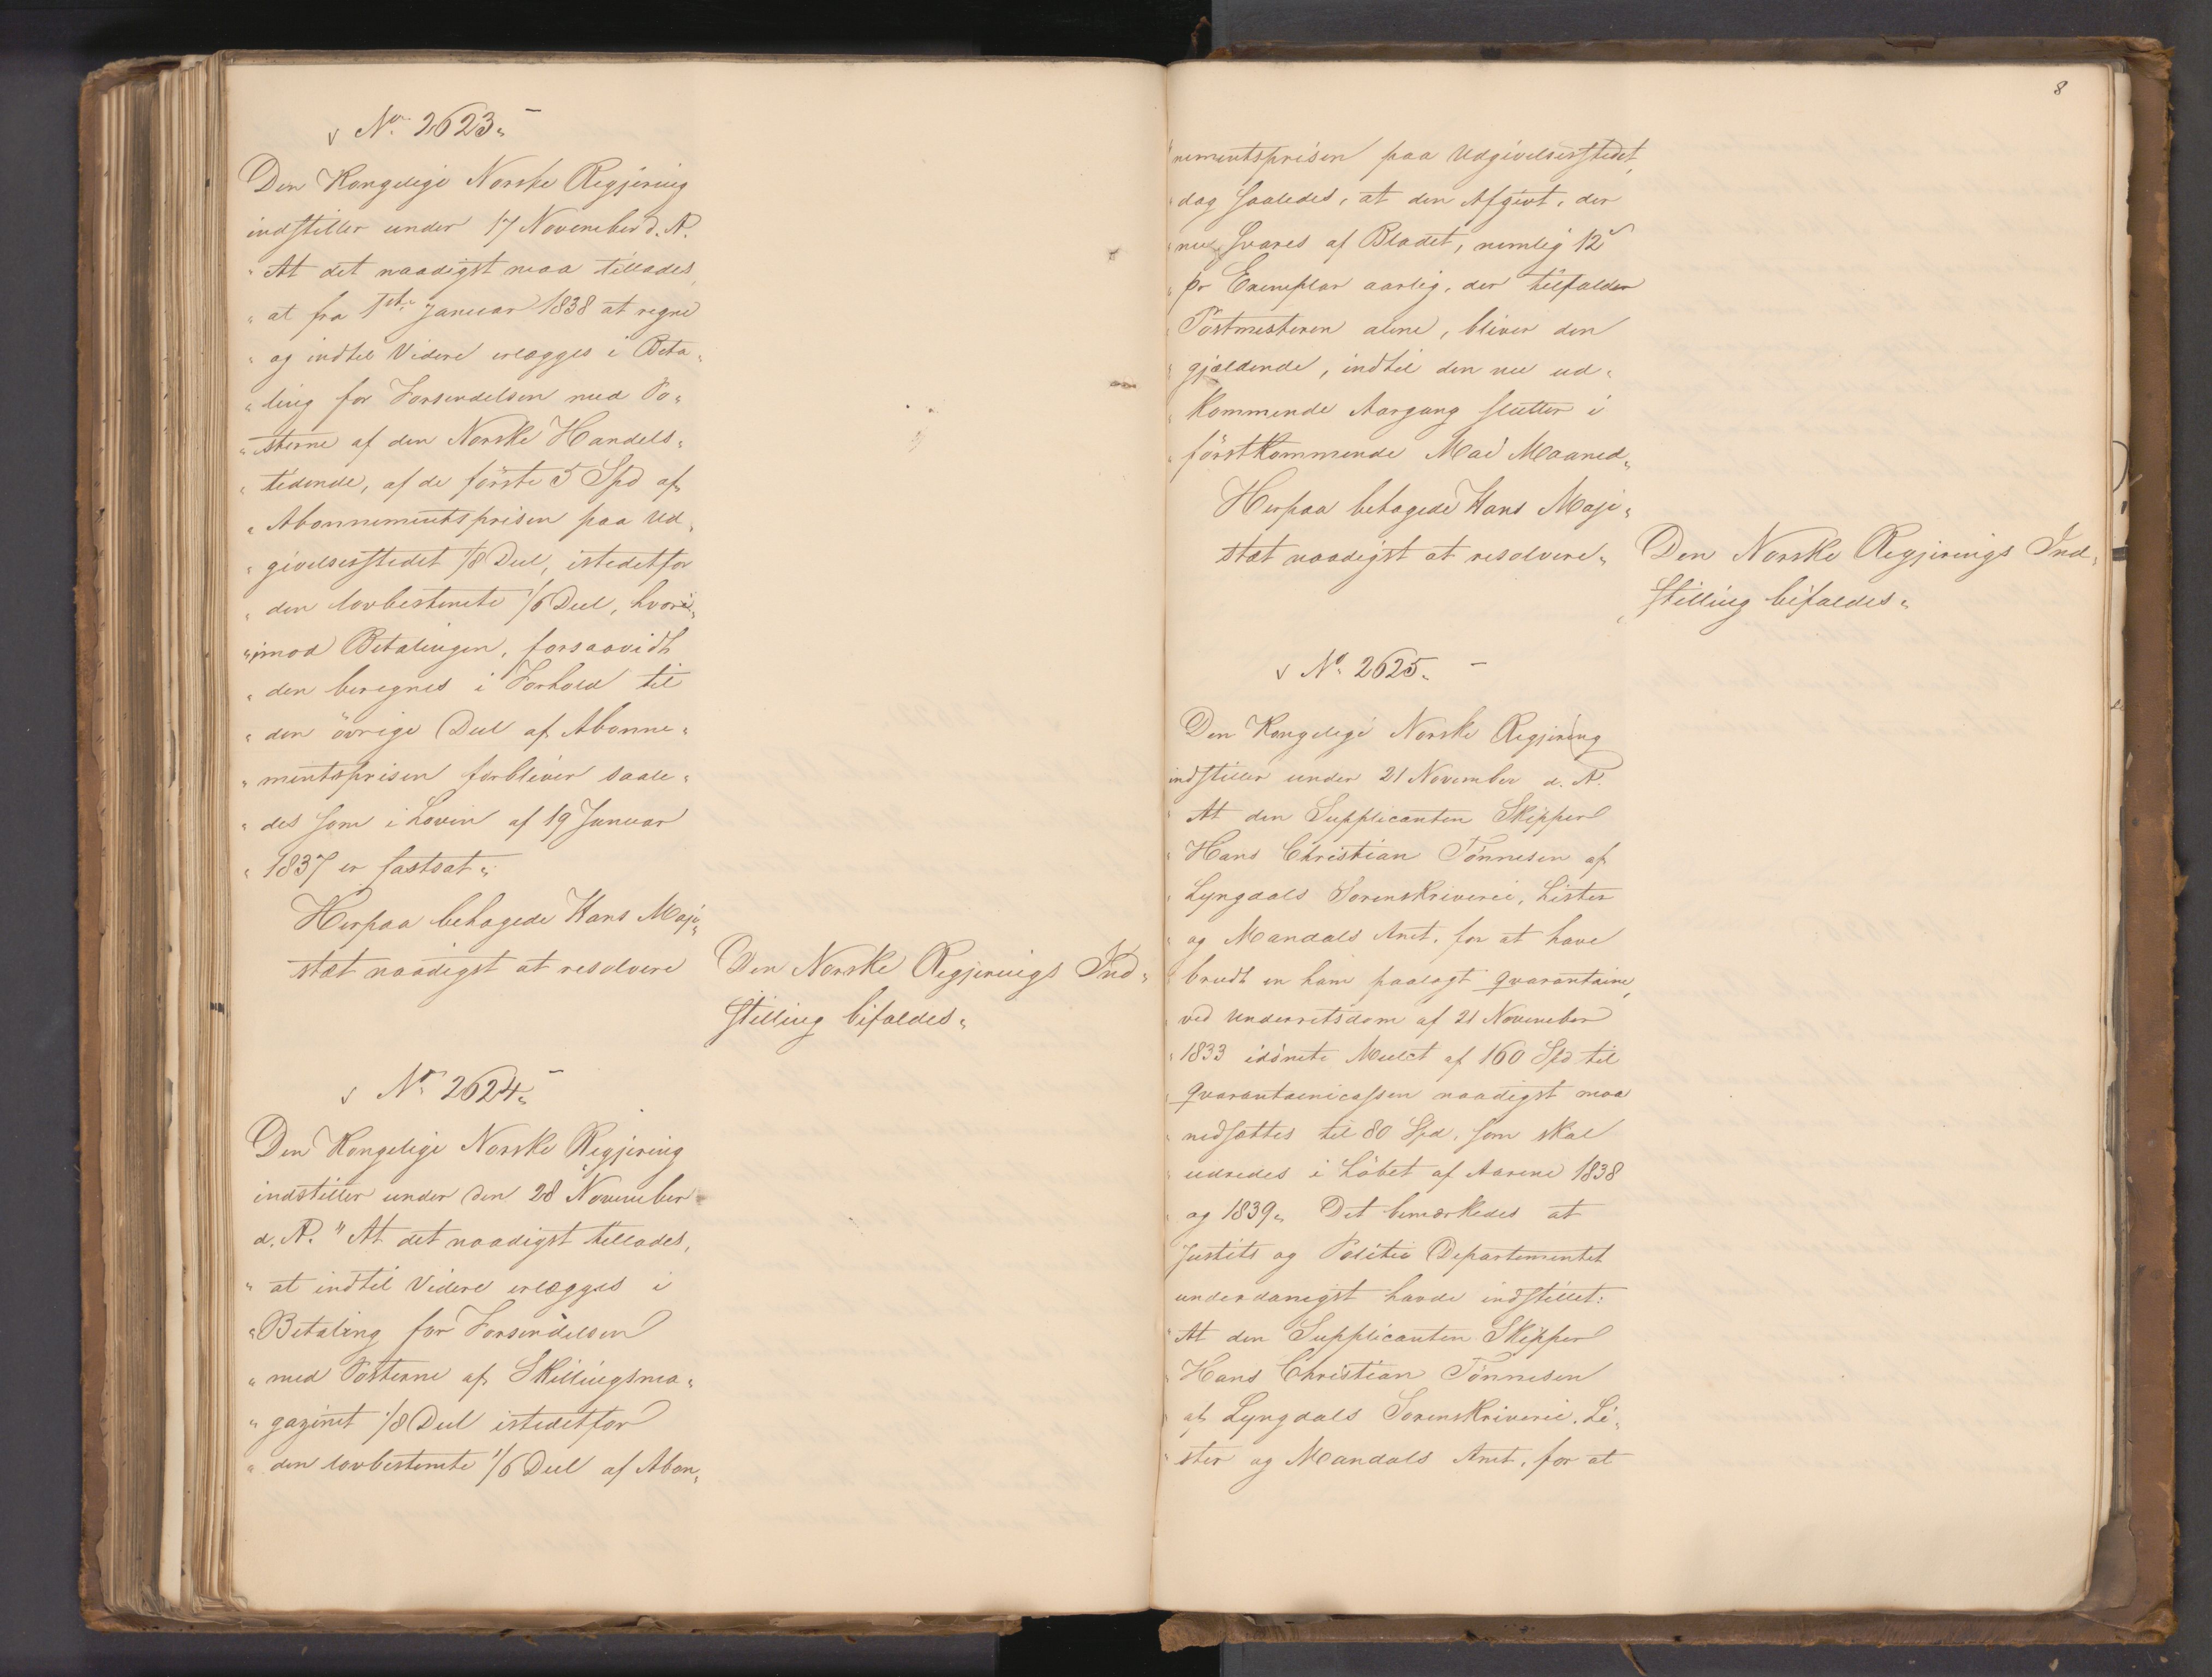 No. 2623.
Den Kongelige Norske Regjering
indstiller under 17 November d. A.
"At det naadigst maa tillades,
"at fra 1ste Januar 1838 at regne
"og indtil Videre erlægges i Beta„
"ling for Forsendelsen med Po„
"sterne af den Norske Handels„
"tidende, af de første 5 Spd af
"Abonnementsprisen paa Ud„
"givelsesstedet 1/8 Deel, istedetfor
"den lovbestemte 1/6 Deel, hvori„
"imod Betalingen, forsaavidt
"den beregnes i Forhold til
"den övrige Deel af Abonne„
"mentsprisen forbliver saale„
"des som i Loven af 19 Januar
"1837 er fastsat".
Herpaa behagede Hans Maje„
stæt naadigst at resolvere
Den Norske Regjerings Ind„
stilling bifaldes.
No. 2624.
Den Kongelige Norske Regjering
indstiller under den 28 November
d. A. "At det naadigst tillades,
"at indtil Videre erlægges i
"Betaling for Forsendelsen
"med Posterne af Skillingsma„
"gazinet 1/8 Deel istedetfor
"den lovbestemte 1/6 Deel af Abon„
8
"nementsprisen paa Udgivelsesstedet,
"dog saaledes, at den Afgivt, der
"nu svares af Bladet, nemlig 12
"pr Exemplar aarlig, der tilfalder
"Postmesteren alene, bliver den
"gjældende, indtil den nu ud„
"kommende Aargang slutter i
"førstkommende Mai Maaned„
Herpaa behagede Hans Maje„
stæt naadigst at resolvere„
Den Norske Regjerings Ind„
stilling bifaldes„
No. 2625.
Den Kongelige Norske Regjering
indstiller under 21 November d. A.
"At den Supplicanten Skipper
"Hans Christian Tönnesen af
"Lyngdals Sorenskriverie, Lister
"og Mandals Amt, for at have
"brudt en ham paalagt Qvarantaine,
"ved Underretsdom af 21 November
"1833 idömte Mulct af 160 Spd til
"Qvarantainecassen naadigst maa
"nedsættes til 80 Spd, som skal
"udredes i Löbet af Aarene 1838
"og 1839„ Det bemærkedes at
Justits og Politie Departementet
underdanigst havde indstillet:
"At den Supplicanten Skipper
"Hans Christian Tönnesen
"af Lyngdals Sorenskriverie, Li„
"ster og Mandals Amt, for at